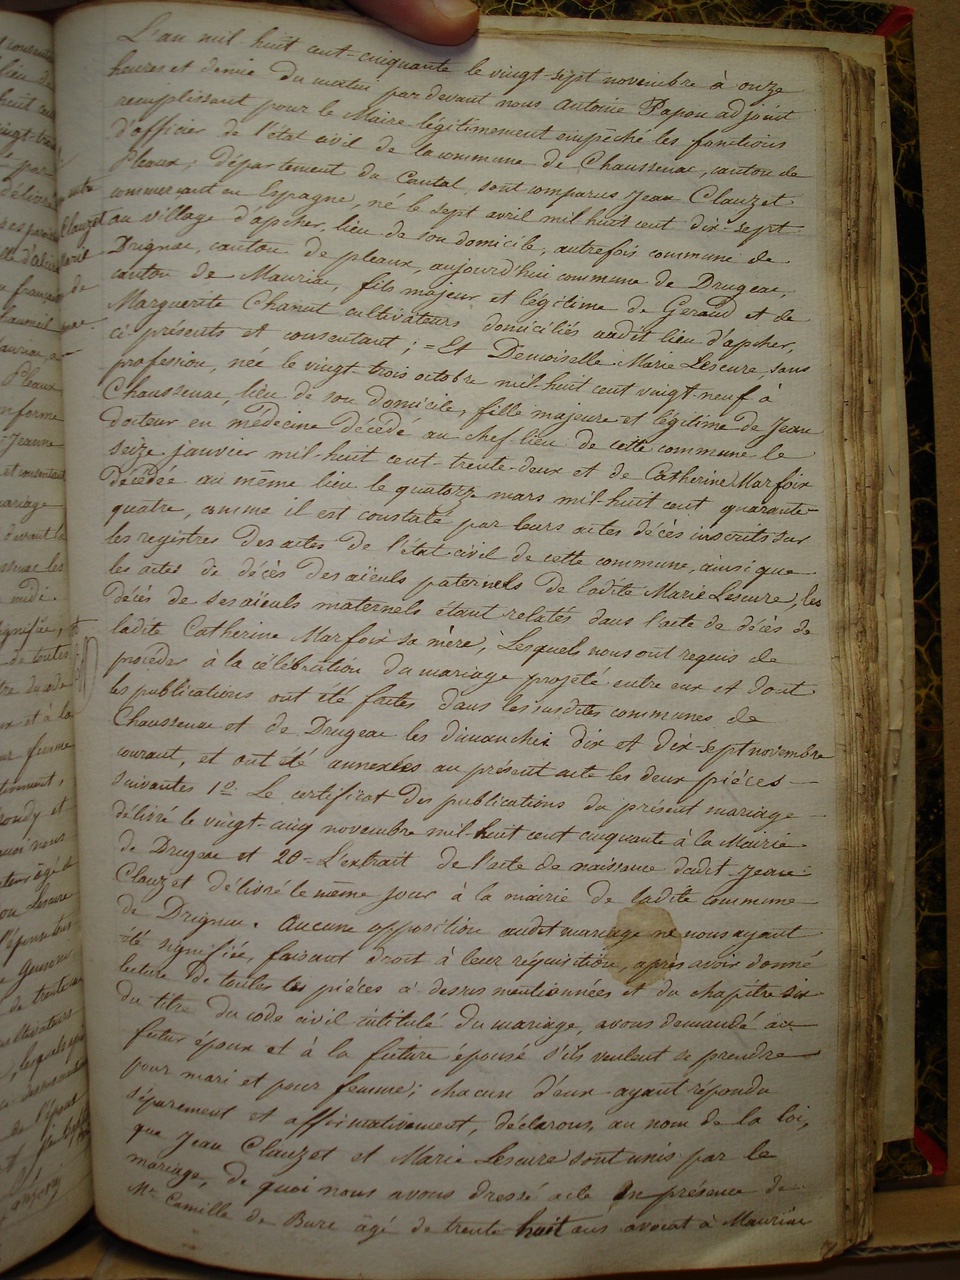 L'an mil huit cent-cinquante le vingt-sept novembre à onze
heures et demie du matin par devant nous Antoine Papou adjoint
remplissant pour le Maire légitimement empêché les fonctions
d'officier de l'état civil de la commune de Chaussenac, canton de
Pleaux, département du Cantal, sont comparus Jean Clauzet
commerçant en Espagne, né le sept avril mil huit cent dix-sept
au village d'apcher, lieu de son domicile, autrefois commune de
Drignac, canton de pleaux, aujourd'hui commune de Drugeac,
canton de Mauriac, fils majeur et légitime de Geraud et de
Marguerite Chanut cultivateurs domiciliés audit lieu d'apcher,
ci présents et consentant ; = Et Demoiselle Marie Lescure, sans
profession, née le vingt-trois octobre mil-huit cent vingt-neuf à
Chaussenac, lieu de son domicile, fille majeure et légitime de Jean
docteur en médecine décédé au chef-lieu de cette commune le
seize janvier mil huit cent-trente-deux et de Catherine Marfoix
décédée au même lieu le quatorze mars mil-huit cent quarante-
quatre, comme il est constaté par leurs actes décès inscrits sur
les registres des actes de l'état-civil de cette commune, ainsi que
les actes de décès des aïeuls paternels de ladite Marie Lescure, les
décès de ses aïeuls maternels étant relatés dans l'acte de décès de
ladite Catherine Marfoix sa mère ; Lesquels nous ont requis de
procéder à la célébration du mariage projeté entre eux et dont
les publications ont été faites dans les susdites communes de
Chaussenac et de Drugeac les dimanches dix et dix-sept novembre
courant, et ont été annexées au présent acte les deux pièces
suivantes 1º Le certificat des publications du présent mariage
délivré le vingt-cinq novembre mil-huit cent cinquante à la Mairie
de Drugeac et 2º L'extrait de l'acte de naissance dudit Jean
Clauzet délivré le même jour à la mairie de ladite commune
de Drignac. Aucune opposition audit mariage ne nous ayant
été signifiée, faisant droit à leur réquisition, après avoir donné
lecture de toutes les pièces ci dessus mentionnées et du chapitre six
du titre du code civil intitulé du mariage, avons demandé au
futur époux et à la future épouse s'ils veulent se prendre
pour mari et pour femme ; chacun d'eux ayant répondu
séparement et affirmativement, déclarons, au nom de la loi,
que Jean Clauzet et Marie Lescure sont unis par le
mariage, de quoi nous avons dressé acte en présence de
Mr Camille de Bure âgé de trente-huit ans avocat à Mauriac